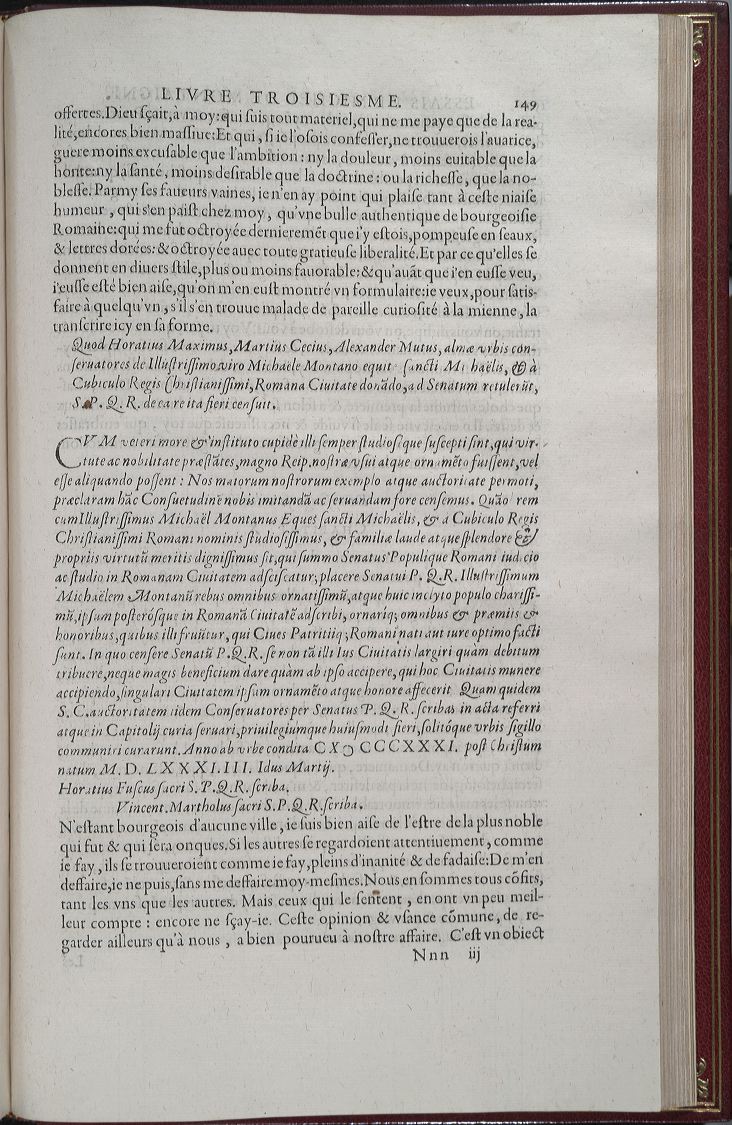 LIVRE TROISIESME. 149
offertes. Dieu sçait, à moy: qui suis tout materiel, qui ne me paye que de la rea-
lité, encores bien massiue: Et qui, si ie l'osois confesser, ne trouuerois l'auarice,
guere moins excusable que l'ambition: ny la douleur, moins euitable que la
honte: ny la santé, moins desirable que la doctrine: ou la richesse, que la no-
blesse. Parmy ses faueurs vaines, ie n'en ay point qui plaise tant à ceste niaise
humeur, qui s'en paist chez moy, qu'vne bulle authentique de bourgeoisie
Romaine: qui me fut octroyée dernieremẽt que i'y estois, pompeuse en seaux,
& lettres dorées: & octroyée auec toute gratieuse liberalité. Et par ce qu'elles se
donnent en diuers stile, plus ou moins fauorable: & qu'auãt que i'en eusse veu,
i'eusse esté bien aise, qu'on m'en eust montré vn formulaire: ie veux, pour satis-
faire à quelqu'vn, s'il s'en trouue malade de pareille curiosité à la mienne, la
transcrire icy en sa forme.
Quod Horatius Maximus, Martius Cecius, Alexander Mutus, almæ vrbis con-
seruatores de Illustrissimo viro Michaële Montano equite sancti Michaëlis, & à
Cubiculo Regis Christianissimi, Romana Ciuitate donãdo, ad Senatum retulerũt,
S. P. Q. R. de ea re ita fieri censuit.
CVM veteri more & instituto cupidè illi semper studioséque suscepti sint, qui vir-
tute ac nobilitate præstãtes, magno Reip. nostræ vsui atque ornamẽto fuissent, vel
esse aliquando possent: Nos maiorum nostrorum exemplo atque auctoritate permoti,
præclaram hãc Consuetudinẽ nobis imitandã ac seruandam fore censemus. Quãobrem
cum Illustrissimus Michaël Montanus Eques sancti Michaëlis, & a Cubiculo Regis
Christianissimi Romani nominis studiosissimus, & familiæ laude atque splendore &
propriis virtutũ meritis dignissimus sit, qui summo Senatus Populique Romani iudicio
ac studio in Romanam Ciuitatem adsciscatur; placere Senatui P. Q. R. Illustrissimum
Michaëlem Montanũ rebus omnibus ornatissimũ, atque huic inclyto populo charissi-
mũ, ipsum posterósque in Romanã Ciuitatẽ adscribi, ornariq; omnibus & præmiis &
honoribus, quibus illi fruũtur, qui Ciues Patritiiq; Romani nati aut iure optimo facti
sunt. In quo censere Senatũ P. Q. R. se non tã illi Ius Ciuitatis largiri quàm debitum
tribuere, neque magis beneficium dare quàm ab ipso accipere, qui hoc Ciuitatis munere
accipiendo, singulari Ciuitatem ipsam ornamẽto atque honore affecerit Quam quidem
S. C. auctoritatem iidem Conseruatores per Senatus P. Q. R. scribas in acta referri
atque in Capitolij curia seruari, priuilegiumque huiusmodi fieri, solitóque vrbis sigillo
communiri curarunt. Anno ab vrbe condita CXↃ CCCXXXI. post Christum
natum M. D. LXXXI. III. Idus Martij.
Horatius Fuscus sacri S. P. Q. R. scriba.
Vincent. Martholus sacri S. P. Q. R. scriba.
N'estant bourgeois d'aucune ville, ie suis bien aise de l'estre de la plus noble
qui fut & qui sera onques. Si les autres se regardoient attentiuement, comme
ie fay, ils se trouueroient comme ie fay, pleins d'inanité & de fadaise: De m'en
deffaire, ie ne puis, sans me deffaire moy-mesmes. Nous en sommes tous cõfits,
tant les vns que les autres. Mais ceux qui le sentent, en ont vn peu meil-
leur compte: encore ne sçay-ie. Ceste opinion & vsance cõmune, de re-
garder ailleurs qu'à nous, a bien pourueu à nostre affaire. C'est vn obiect
Nnn iij